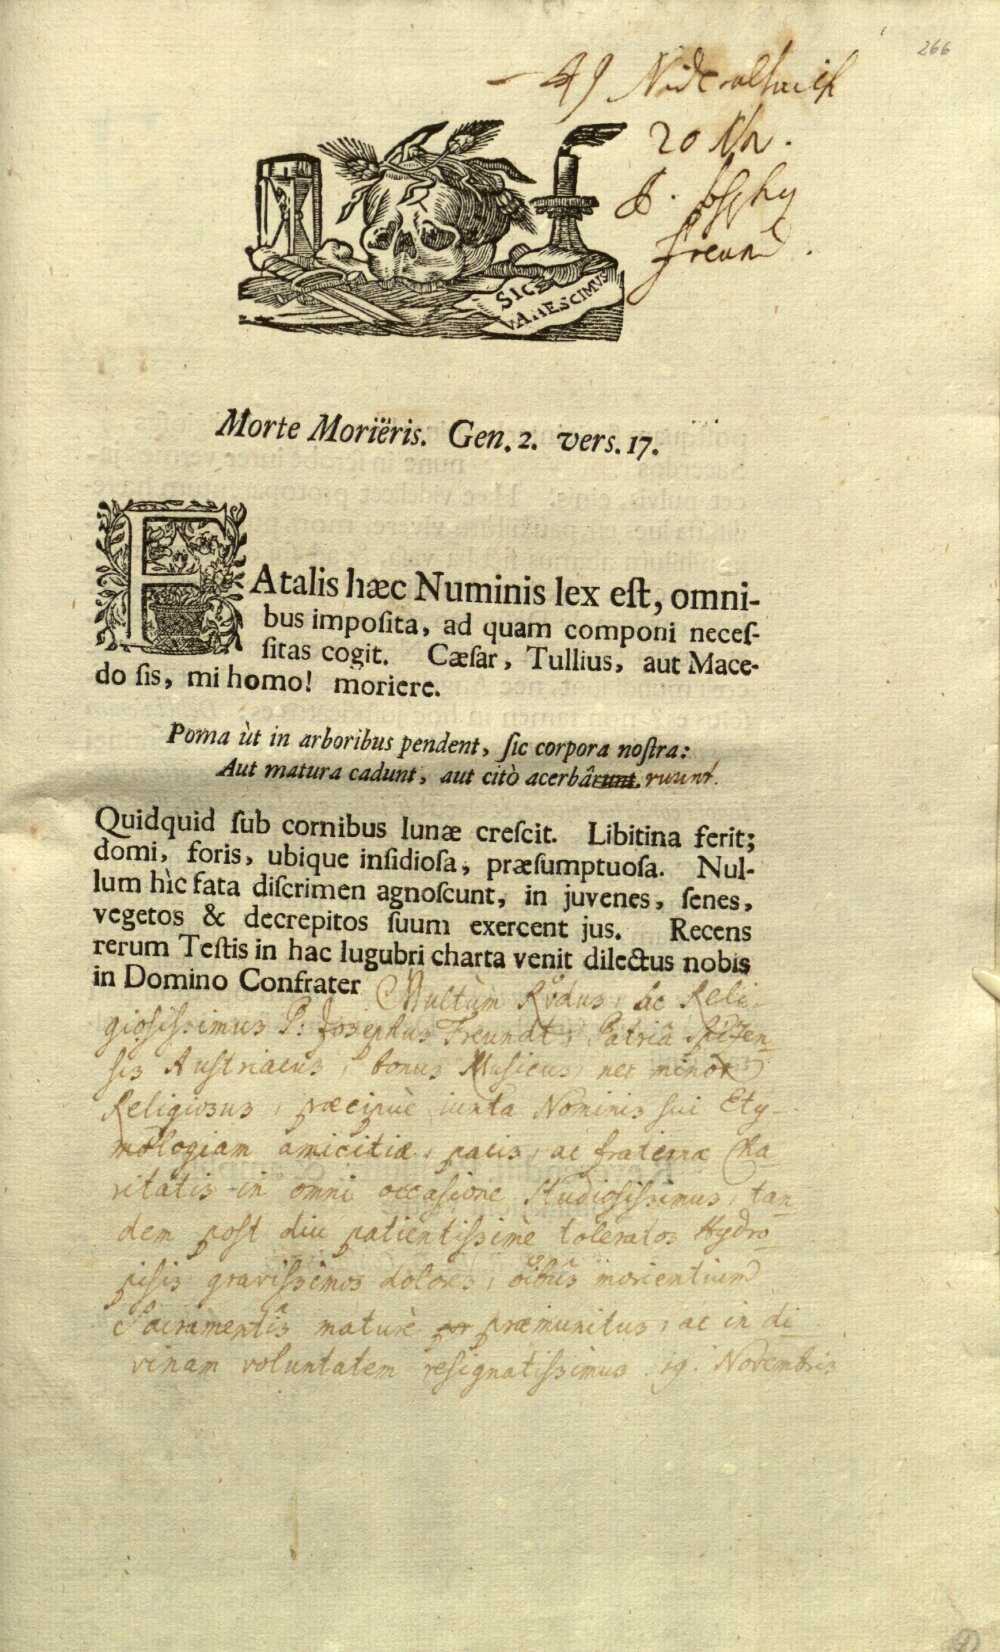 266
49 Nideraltaich
20 9br.
P. Josephus
Freund.
SIC
VANESCIMUS
Morte Moriëris. Gen. 2. vers. 17.
FAtalis hæc Numinis lex est, omni-
bus imposita, ad quam componi neces-
sitas cogit. Cæsar, Tullius, aut Mace-
do sis, mi homo! moriere.
Poma ùt in arboribus pendent, sic corpora nostra:
Aut matura cadunt, aut citò acerbârunt. ruunt.
Quidquid sub cornibus lunæ crescit. Libitina ferit;
domi, foris, ubique insidiosa, præsumptuosa. Nul-
lum hìc fata discrimen agnoscunt, in juvenes, senes,
vegetos & decrepitos suum exercent jus. Recens
rerum Testis in hac lugubri charta venit dilectus nobis
in Domino Confrater Multùm Rvdus, ac Reli-
giosissimus P: Josephus Freundt, Patriâ
sis Austriacus, bonus Musicus, nec minor
Religiosus, præcipuè iuxta Nominis sui Ety-
mologiam amicitiæ, pacis, ac fraternæ Cha
ritatis in omni occasione studiosissimus, tan
dem post diu patientissimè toleratos Hydro
pisis gravissimos dolores, oibûs morientium
Sacramentîs maturè præmunitus, ac in di
vinam voluntatem resignatissimus. 19. Novembris